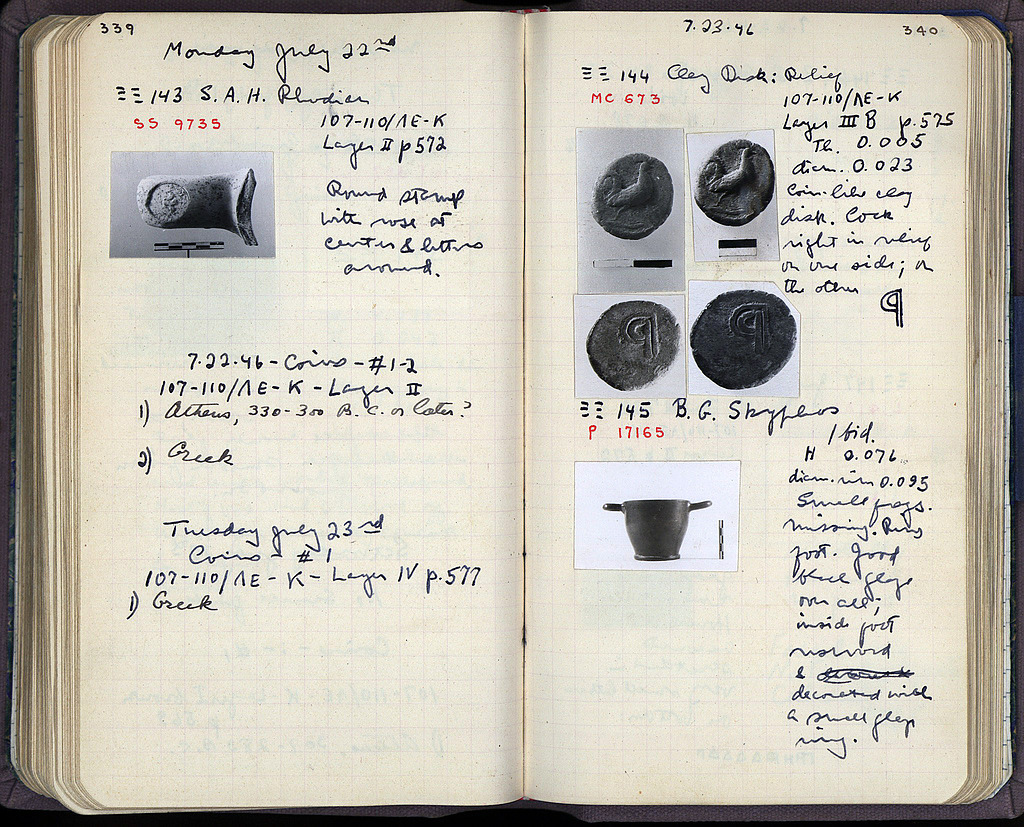 339
Monday July 22nd
ΞΞ 143 S.A.H. Rhodian
SS 9735
107-110/ΛE-K
Layer II p 572
Round stamp
with rose at
center & letters
around.
7.22.46 - Coins - #1-2
107-110/ΛE-K - Layer II
1) Athens, 330-300 B.C. or later?
2) Greek
Tuesday July 23rd
Coins - #1
107-110/ΛE-K - Layer IV p.577
1) Greek
7.23.46
340
ΞΞ 144 Clay Disk: Relief
MC 673
107-110/ΛE-K
Layer III B p.575
Th. 0.005
diam. 0.023
Coin-like clay
disk. Cock
right in relief
on one side; on
the other
ΞΞ 145 B.G. Skyphos
P 17165
Ibid.
H 0.076
diam. rim 0.095
Small frags.
missing. Ring
foot. Good
black glaze
over all;
inside foot
reserved
&
decorated with
a small glaze
ring.